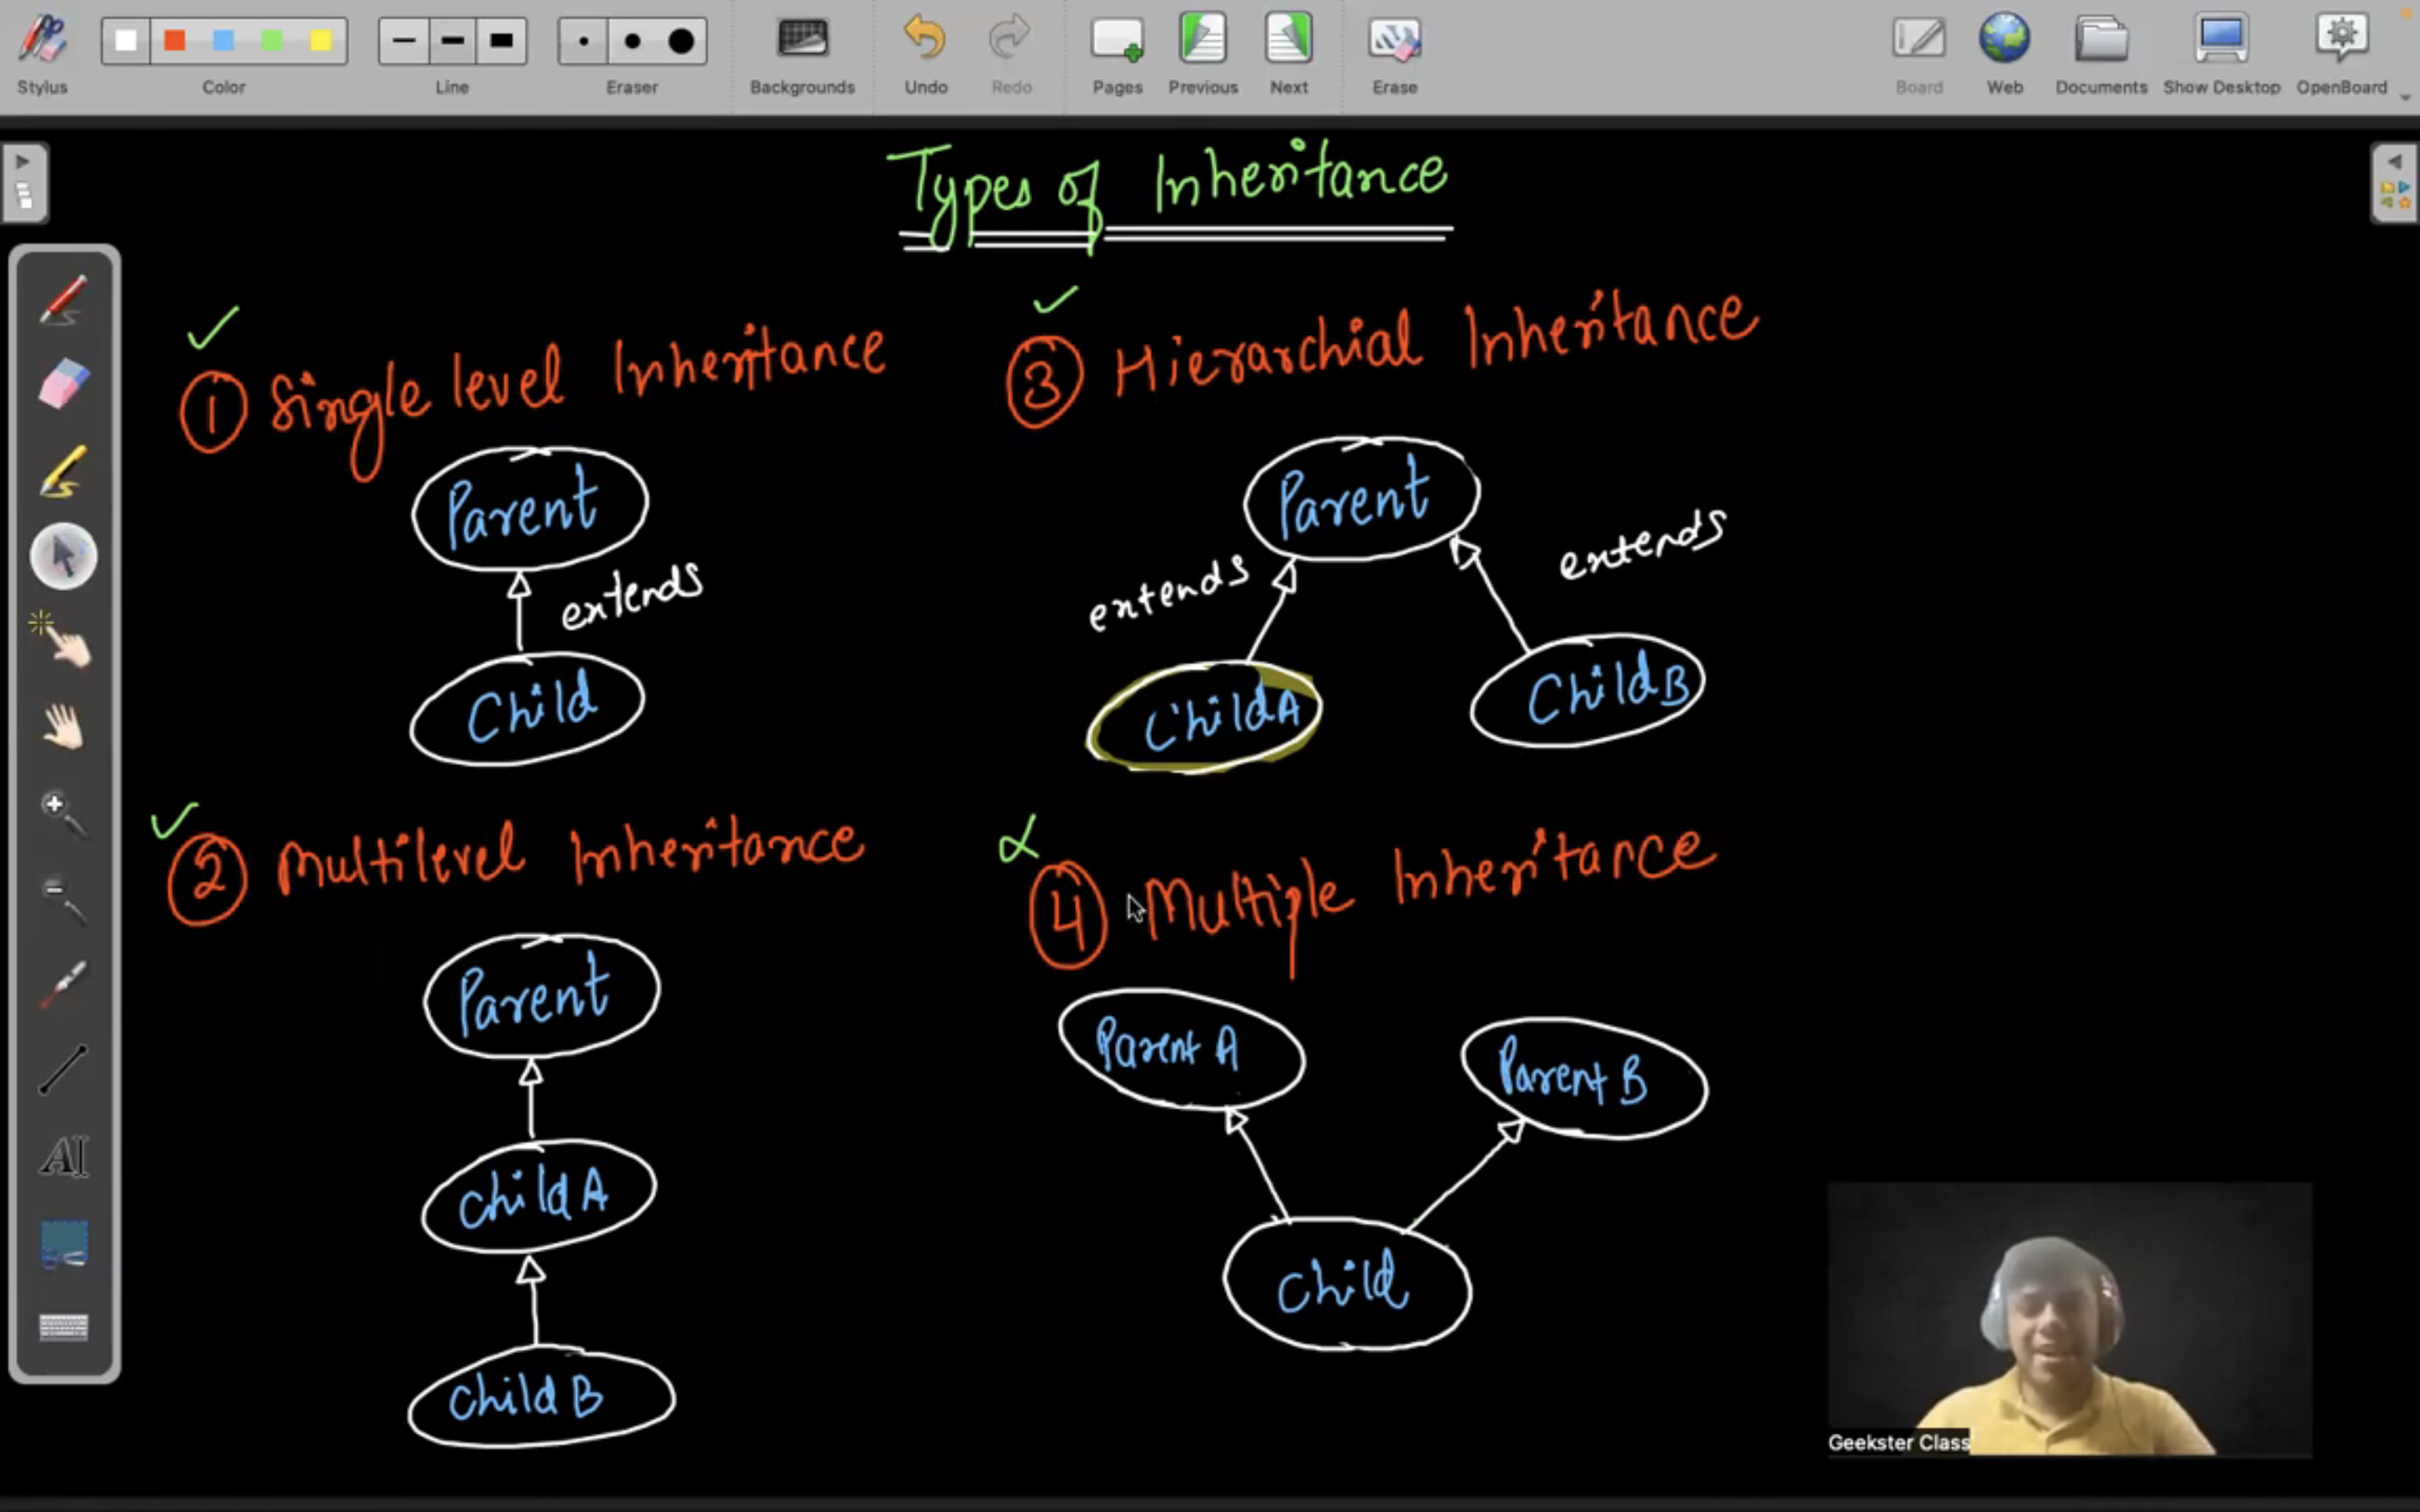 Stylus
Color
Line
Eraser
Backgrounds
Undo
Redo
Pages
Previous
Next
Erase
Board
Web
Documents
Show Desktop
OpenBoard
Types of Inheritance
1 Single level Inheritance
Parent
extends
Child
2 Multilevel Inheritance
Parent
Child A
Child B
3 Hierarchial Inheritance
Parent
extends
extends
Child A
Child B
4 Multiple Inheritance
Parent A
Parent B
Child
AI
Geekster Class